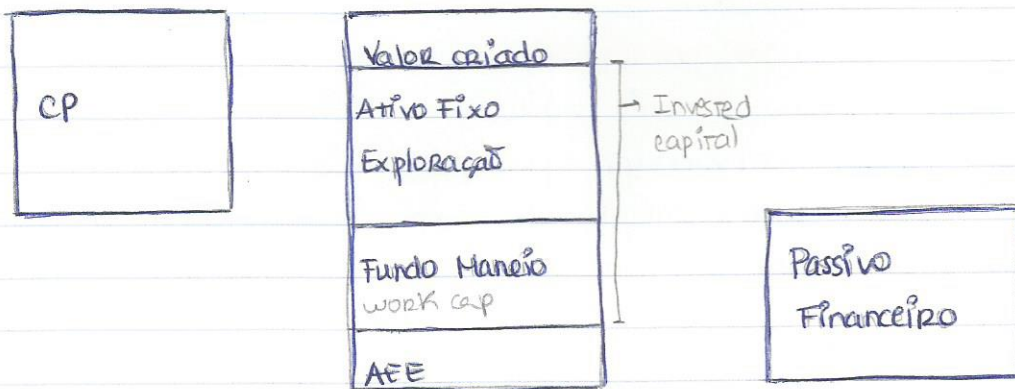 CP
Valor criado
Ativo Fixo
Exploração
Fundo Maneio
work cap
AEE
Invested
capital
Passivo
Financeiro